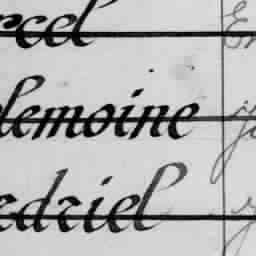 rcel
lemoine
edriel